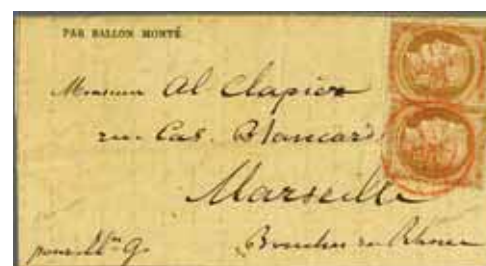 PAR BALLON MONTÉ.
Monsieur Al Clapier
rue Cas. Blancard
Marseille
Bouches du Rhône